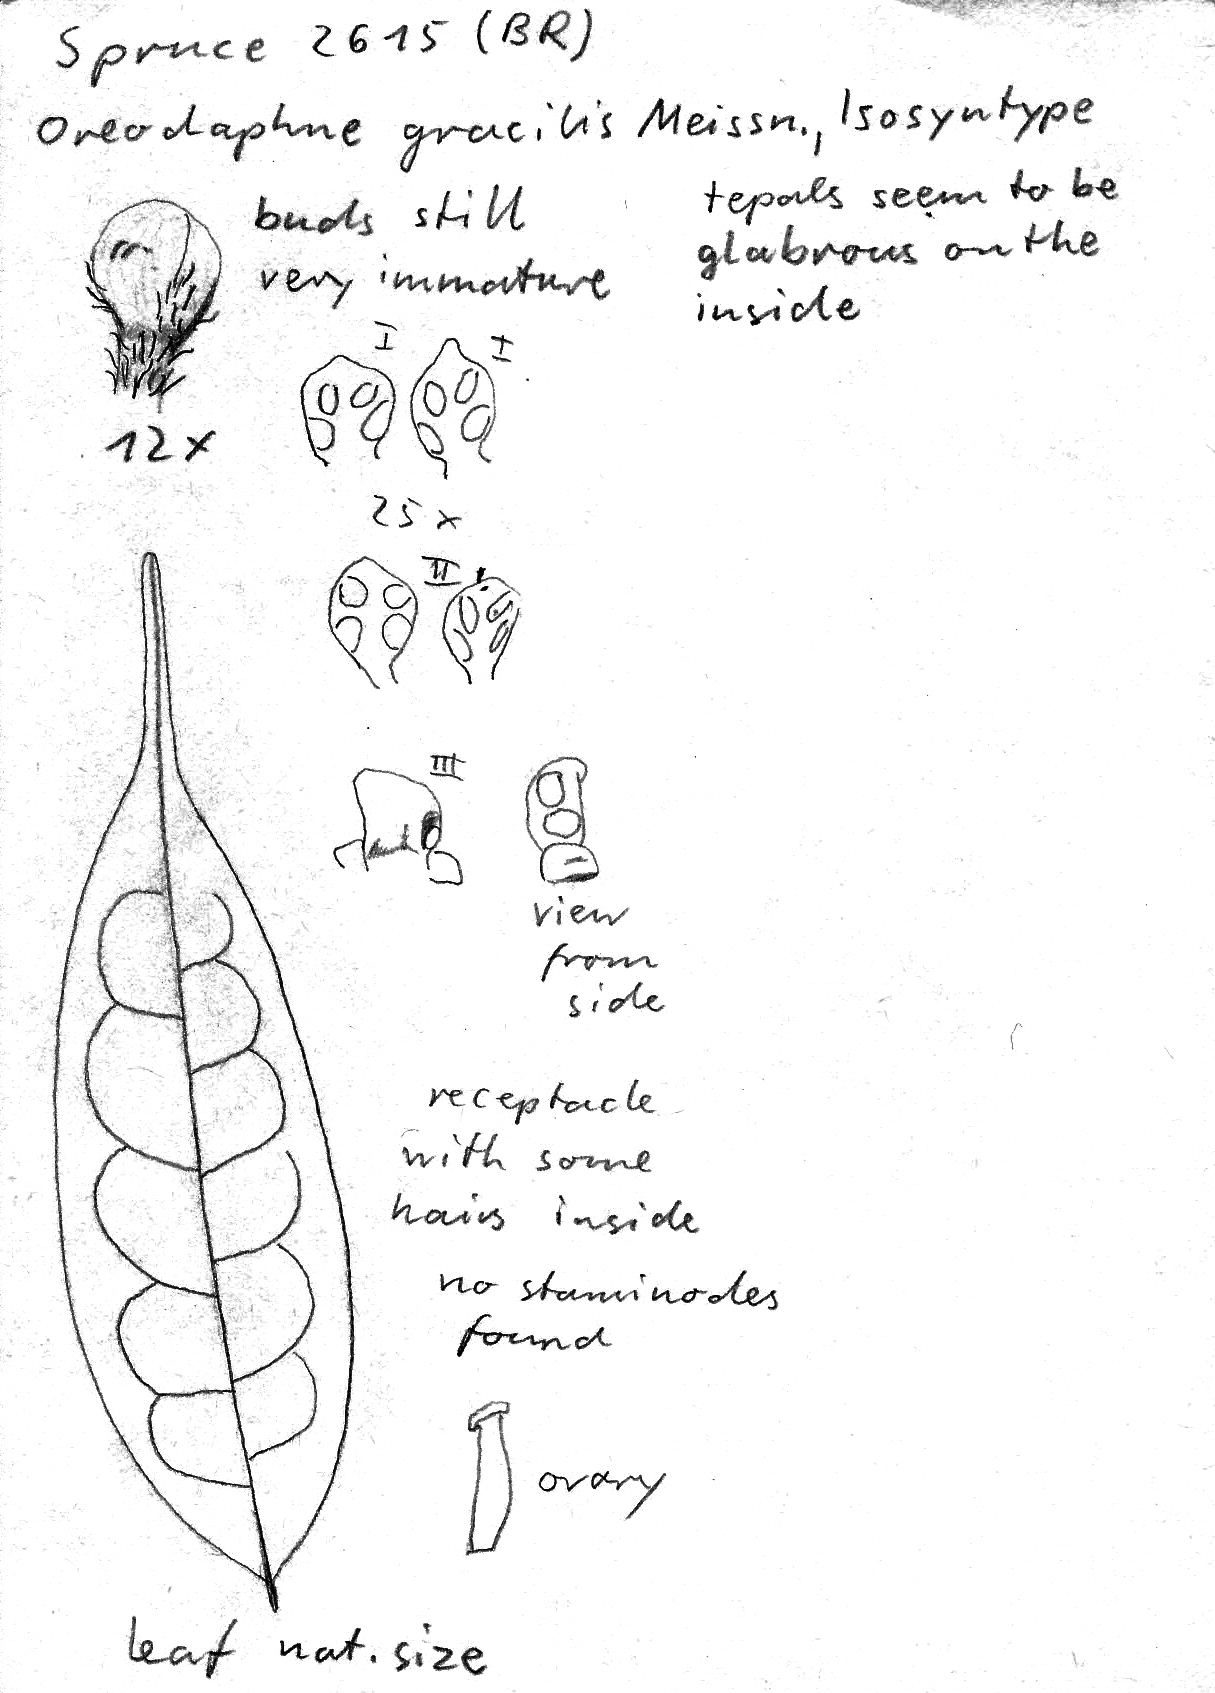 Spruce 2615 (BR)
Oreodaphne gracilis Meissn., Isosyntype
buds still
very immature
tepals seem to be
glabrous on the
inside
I I
12x
25x
II
III
view
from
side
receptacle
with some
hairs inside
no staminodes
found
ovary
leaf nat. size